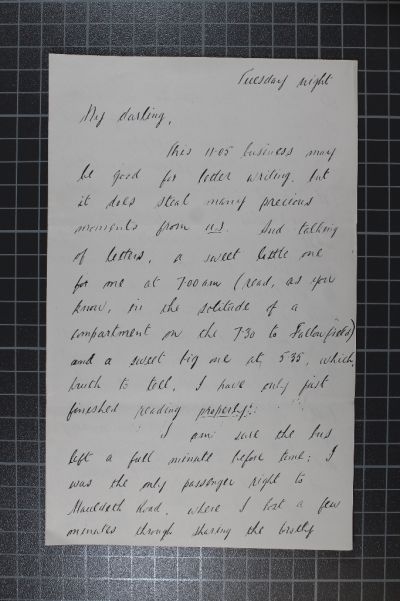 Tuesday night
My darling,
This 11.05 business may
be good for letter writing, but
it does steal many precious
moments from us. And talking
of letters, a sweet little one
for me at 7.00 am (read, as you
know, in the solitude of a
compartment on the 7.30 to Fallowfield)
and a sweet big one at 5.35, which,
truth to tell, I have only just
finished reading properly!
I am sure the bus
left a full minute before time: I
was the only passenger right to
Mauldeth Road, where I lost a few
minutes through sharing the